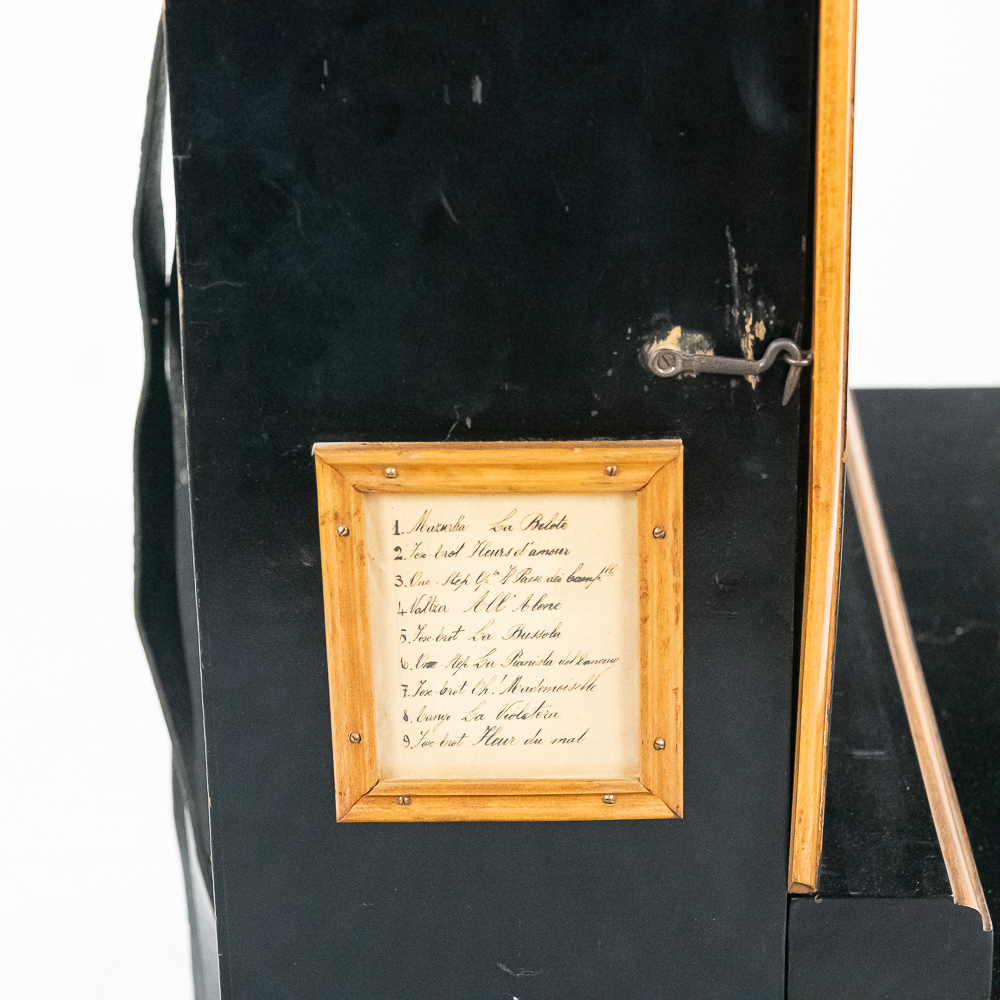 1. Mazurka La Belote
2. Fox-trot Fleurs d'amour
3. One-Step Paese dei Camp.lli
4. Valtzer All' Alone
5. Fox-trot La Bussola
6. One-Step La Pianista del Dancing
7. Fox-trot Oh! Mademoiselle
8. Tango La Violetéra
9. Fox-trot Fleur du mal